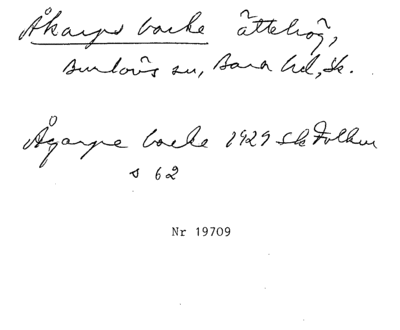 Åkarps backe ättehög,
Burlövs sn, Bara hd, Sk.
Ågarpe backe 1929 Sk Folkm
s 62
Nr 19709